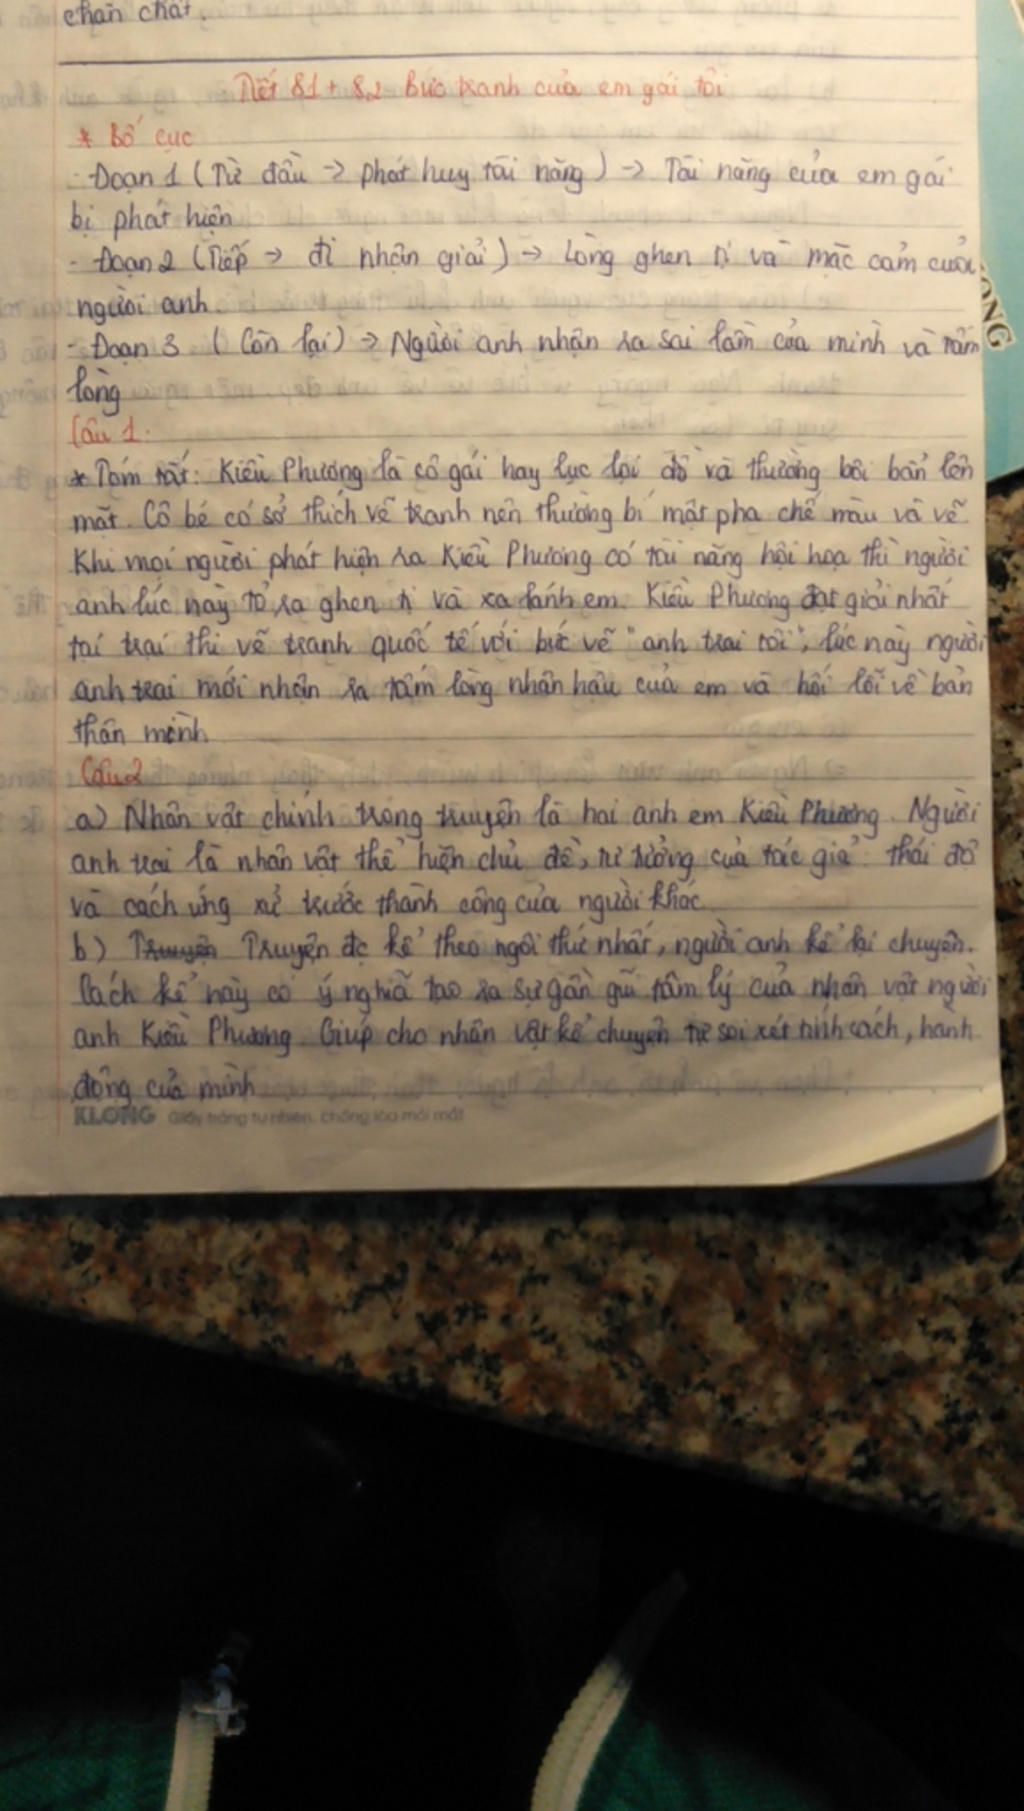 chân chất.
Tiết 81 + 82 Bức tranh của em gái tôi
* Bố cục
- Đoạn 1 (Từ đầu → phát huy tài năng) → Tài năng của em gái
bị phát hiện
- Đoạn 2 (Tiếp → đi nhận giải) → Lòng ghen tị và mặc cảm của
người anh.
- Đoạn 3 (Còn lại) → Người anh nhận ra sai lầm của mình và tấm
lòng
Câu 1.
* Tóm tắt: Kiều Phương là cô gái hay lục lọi đồ và thường bôi bẩn lên
mặt. Cô bé có sở thích vẽ tranh nên thường bí mật pha chế màu và vẽ
Khi mọi người phát hiện ra Kiều Phương có tài năng hội họa thì người
anh lúc này tỏ ra ghen tị và xa lánh em. Kiều Phương đạt giải nhất
tại trại thi vẽ tranh quốc tế với bức vẽ "anh trai tôi", lúc này người
anh trai mới nhận ra tấm lòng nhân hậu của em và hối lỗi về bản
thân mình
Câu 2
a) Nhân vật chính trong truyện là hai anh em Kiều Phương. Người
anh trai là nhân vật thể hiện chủ đề, tư tưởng của tác giả: thái độ
và cách ứng xử trước thành công của người khác
b) Truyện Truyện đc kể theo ngôi thứ nhất, người anh kể lại chuyện.
Cách kể này có ý nghĩa tạo ra sự gần gũi tâm lý của nhân vật người
anh Kiều Phương. Giúp cho nhân vật kể chuyện tự soi xét tính cách, hành
động của mình
KLONG Giấy trắng tự nhiên, chống lóa mỏi mắt
ONG